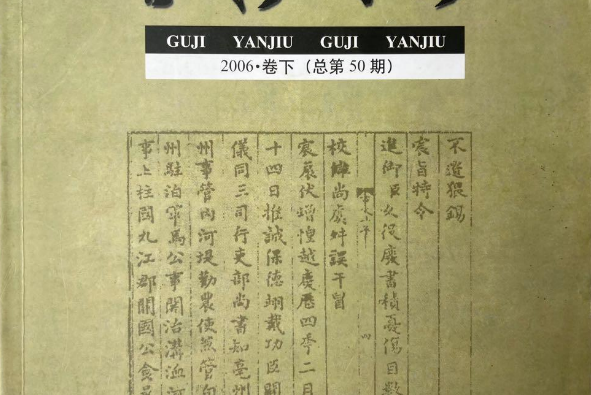 GUJI YANJIU GUJI YANJIU
2006·卷下（总第50期）
不遗猥錫
宸旨特令
進御臣久役廢書積憂傷目
校讎尚慮舛誤干冒
宸扆伏增惶越慶曆四季二月
十四日推誠保德翊戴功臣開
儀同三司行吏部尚書知亳州
州事管内河堤勸農使兼管
州駐泊軍馬公事開治溝洫河
事上柱國九江郡開國公食